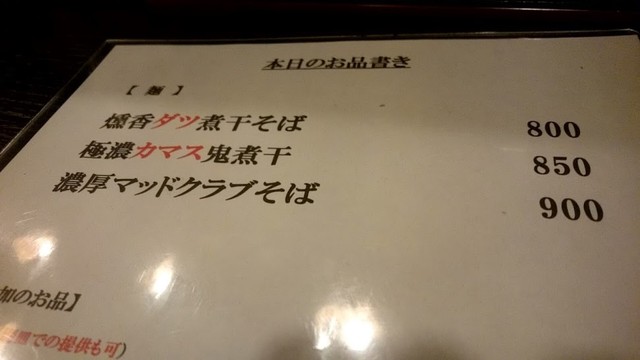 本日のお品書き
【 麺 】
燻香ダツ煮干そば 800
極濃カマス鬼煮干 850
濃厚マッドクラブそば 900
加のお品】
での提供も可）